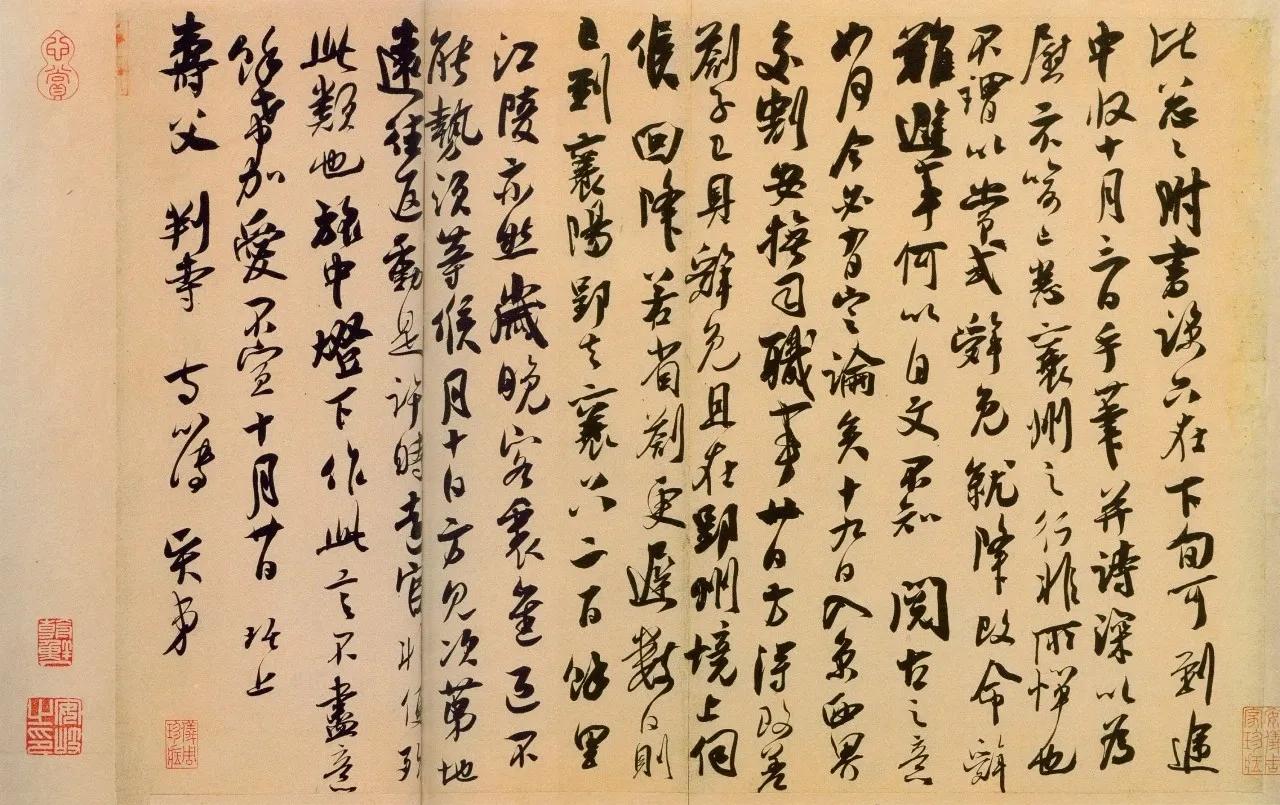 比怱々附書諒只在下旬可到遞
中收十月六日手筆并詩深以為
慰示喻已悉襄州之行非所憚也
不謂以常式辭免就降改命辭
難避事何以自文不知 閱古之意
如何今必有定論矣十九日入京西界
交割安撫司職事廿日方得改差
劄子已具辭免且在郢州境上伺
候回降若省劄更遲數日則
已到襄陽郢去襄只二百餘里
江陵亦然歲晚客裏進退不
能勢須等候月十日方見次第地
遠往返動是許時
此類也旅中燈下作此言不盡意
餘希加愛不宣十月廿日 琚上
壽父 判寺 賢弟